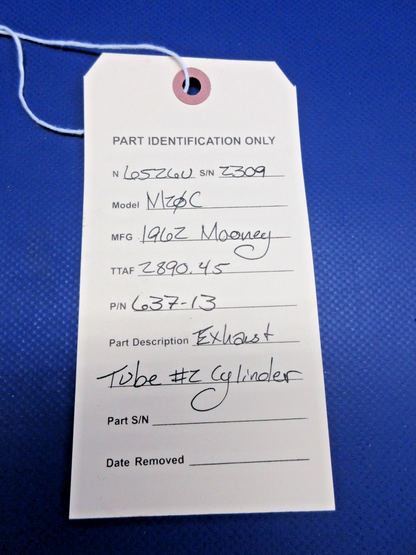 PART IDENTIFICATION ONLY
N 6526U S/N 2309
Model M20C
MFG 1962 Mooney
TTAF 2890.45
P/N 637-13
Part Description Exhaust
Tube #2 Cylinder
Part S/N
Date Removed